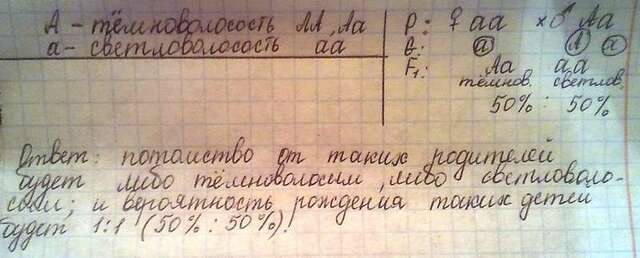 А - тёмноволосость АА, Аа
а - светловолосость аа
Р: ♀ аа × ♂ Аа
G: а А а
F₁: Аа аа
тёмнов. светлов.
50% : 50%
Ответ: потомство от таких родителей
будет либо тёмноволосым, либо светловоло-
сым; и вероятность рождения таких детей
будет 1:1 (50% : 50%)!